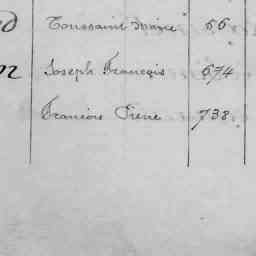 Toussaint 66
Joseph François 674
François Pierre 738